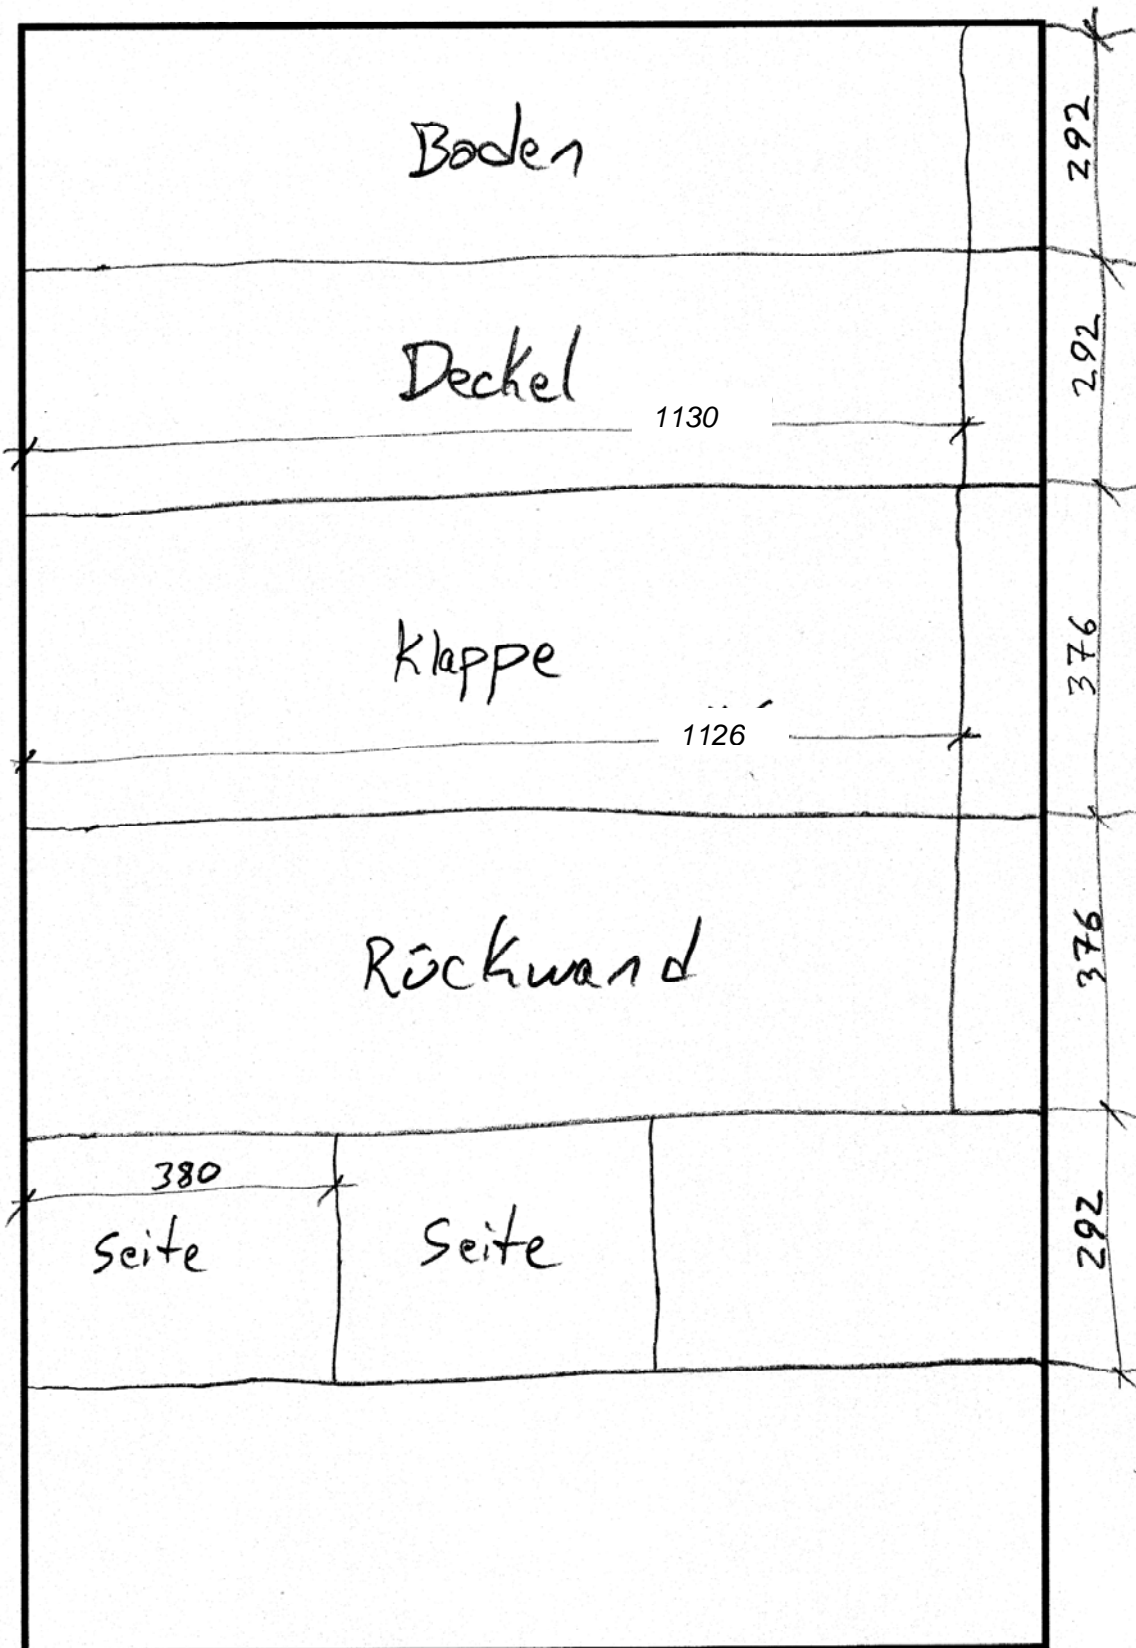 Boden
292
Deckel
292
1130
Klappe
376
1126
Rückwand
376
380
Seite
Seite
292